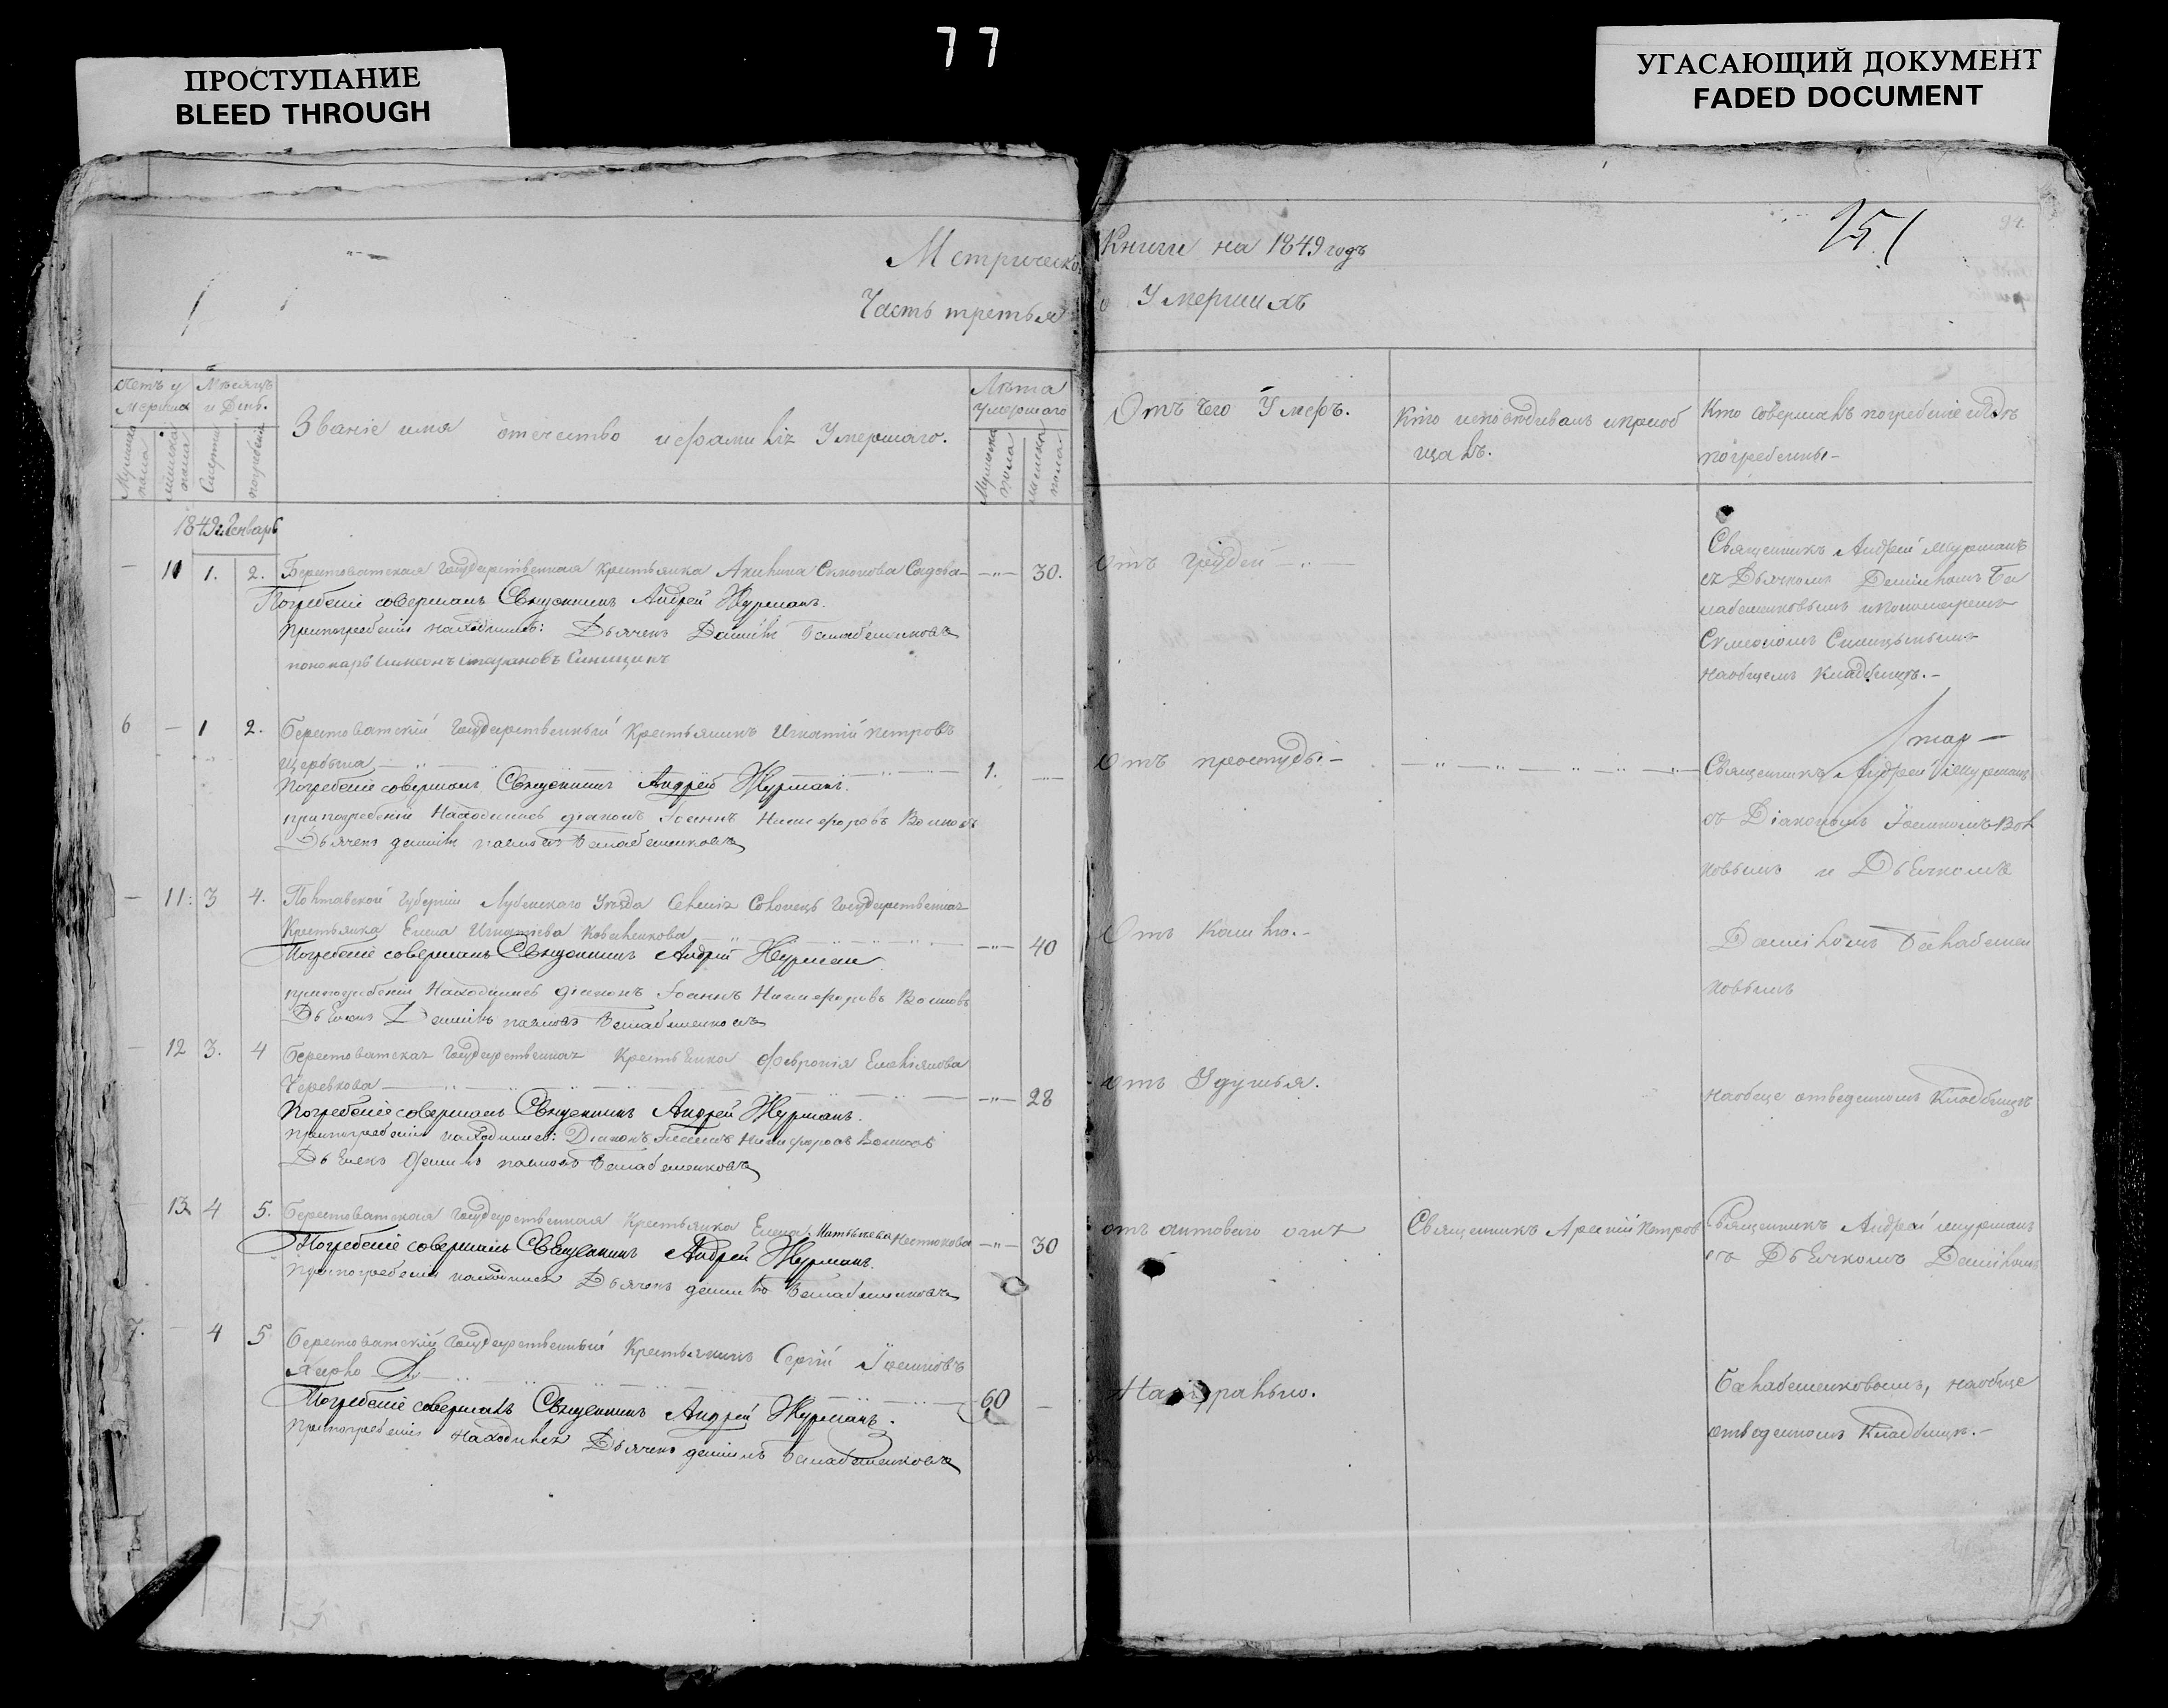 77
ПРОСТУПАНИЕ
BLEED THROUGH
УГАСАЮЩИЙ ДОКУМЕНТ
FADED DOCUMENT
151
Метрической Книги на 1849 годъ
Часть третья о Умершихъ
Мѣсяцъ и День.
Лѣта Умершаго
Званіе имя отечество и фамилія Умершаго.
Отъ чего Умеръ.
Кто исповѣдивалъ и приобщалъ.
Кто совершалъ погребеніе и гдѣ погребены
Мужеска пола
Женска пола
Смерти
погребенія
Мужеска пола
женска пола
1849 Генварь
11 1. 2. Берестоватская Государственная Крестьянка Акилина Симонова Садова 30. Отъ грудей
Погребеніе совершалъ Священникъ Андрей Журманъ.
При погребеніи находились: Дьячекъ Даниилъ Балабаненковъ
пономарь Симеонъ Синицинъ
Священникъ Андрей Журманъ
съ Дьячкомъ Даниіломъ Ба
лабаненковымъ и пономаремъ
Симеономъ Синицынымъ
на общемъ кладбищѣ.
6 1 2. Берестоватскій Государственный Крестьянинъ Игнатій Петровъ
Щербина 1. Отъ простуды
Погребеніе совершалъ Священникъ Андрей Журманъ.
при погребеніи Находились діаконъ Іоаннъ Никифоровъ Волковъ
Дьячекъ Балабаненковъ
Священникъ Андрей Журманъ
съ Діакономъ Іоанномъ Вол
ковымъ и Дьячкомъ
11 3 4. Полтавской Губерніи Лубенскаго Уѣзда Государственная
Крестьянка Елена Игнатіева Коваленкова 40 Отъ Кашлю.
Погребеніе совершалъ Священникъ Андрей Журман
при погребеніи Находились діаконъ Іоаннъ Никифоровъ Волковъ
Дьячекъ Даниилъ Балабаненковъ
Даниіломъ Балабанен
ковымъ
12 3. 4 Берестоватская Государственная Крестьянка Февронія Емеліянова
Черевкова 28 отъ Удушья.
Погребеніе совершалъ Священникъ Андрей Журманъ.
При погребеніи находились: Діаконъ Іоаннъ Никифоровъ Волковъ
Дьячекъ Балабаненковъ
на обще отведенномъ Кладбищѣ
13 4 5. Берестоватская Государственная Крестьянка Елена 30 отъ антоваго огня Священникъ Арсеній Петров
Погребеніе совершалъ Священникъ Андрей Журманъ.
При погребеніи находился Дьячекъ Даниилъ Балабаненковъ
Священникъ Андрей Журманъ
съ Дьячкомъ Даниіломъ
7. 4 5 Берестоватскій Государственный Крестьянинъ Сергій Іоанновъ
60 Натурально.
Погребеніе совершалъ Священникъ Андрей Журманъ.
При погребеніи находился Дьячекъ Даниилъ Балабаненковъ
Балабаненковымъ, на обще
отведенномъ Кладбищѣ.